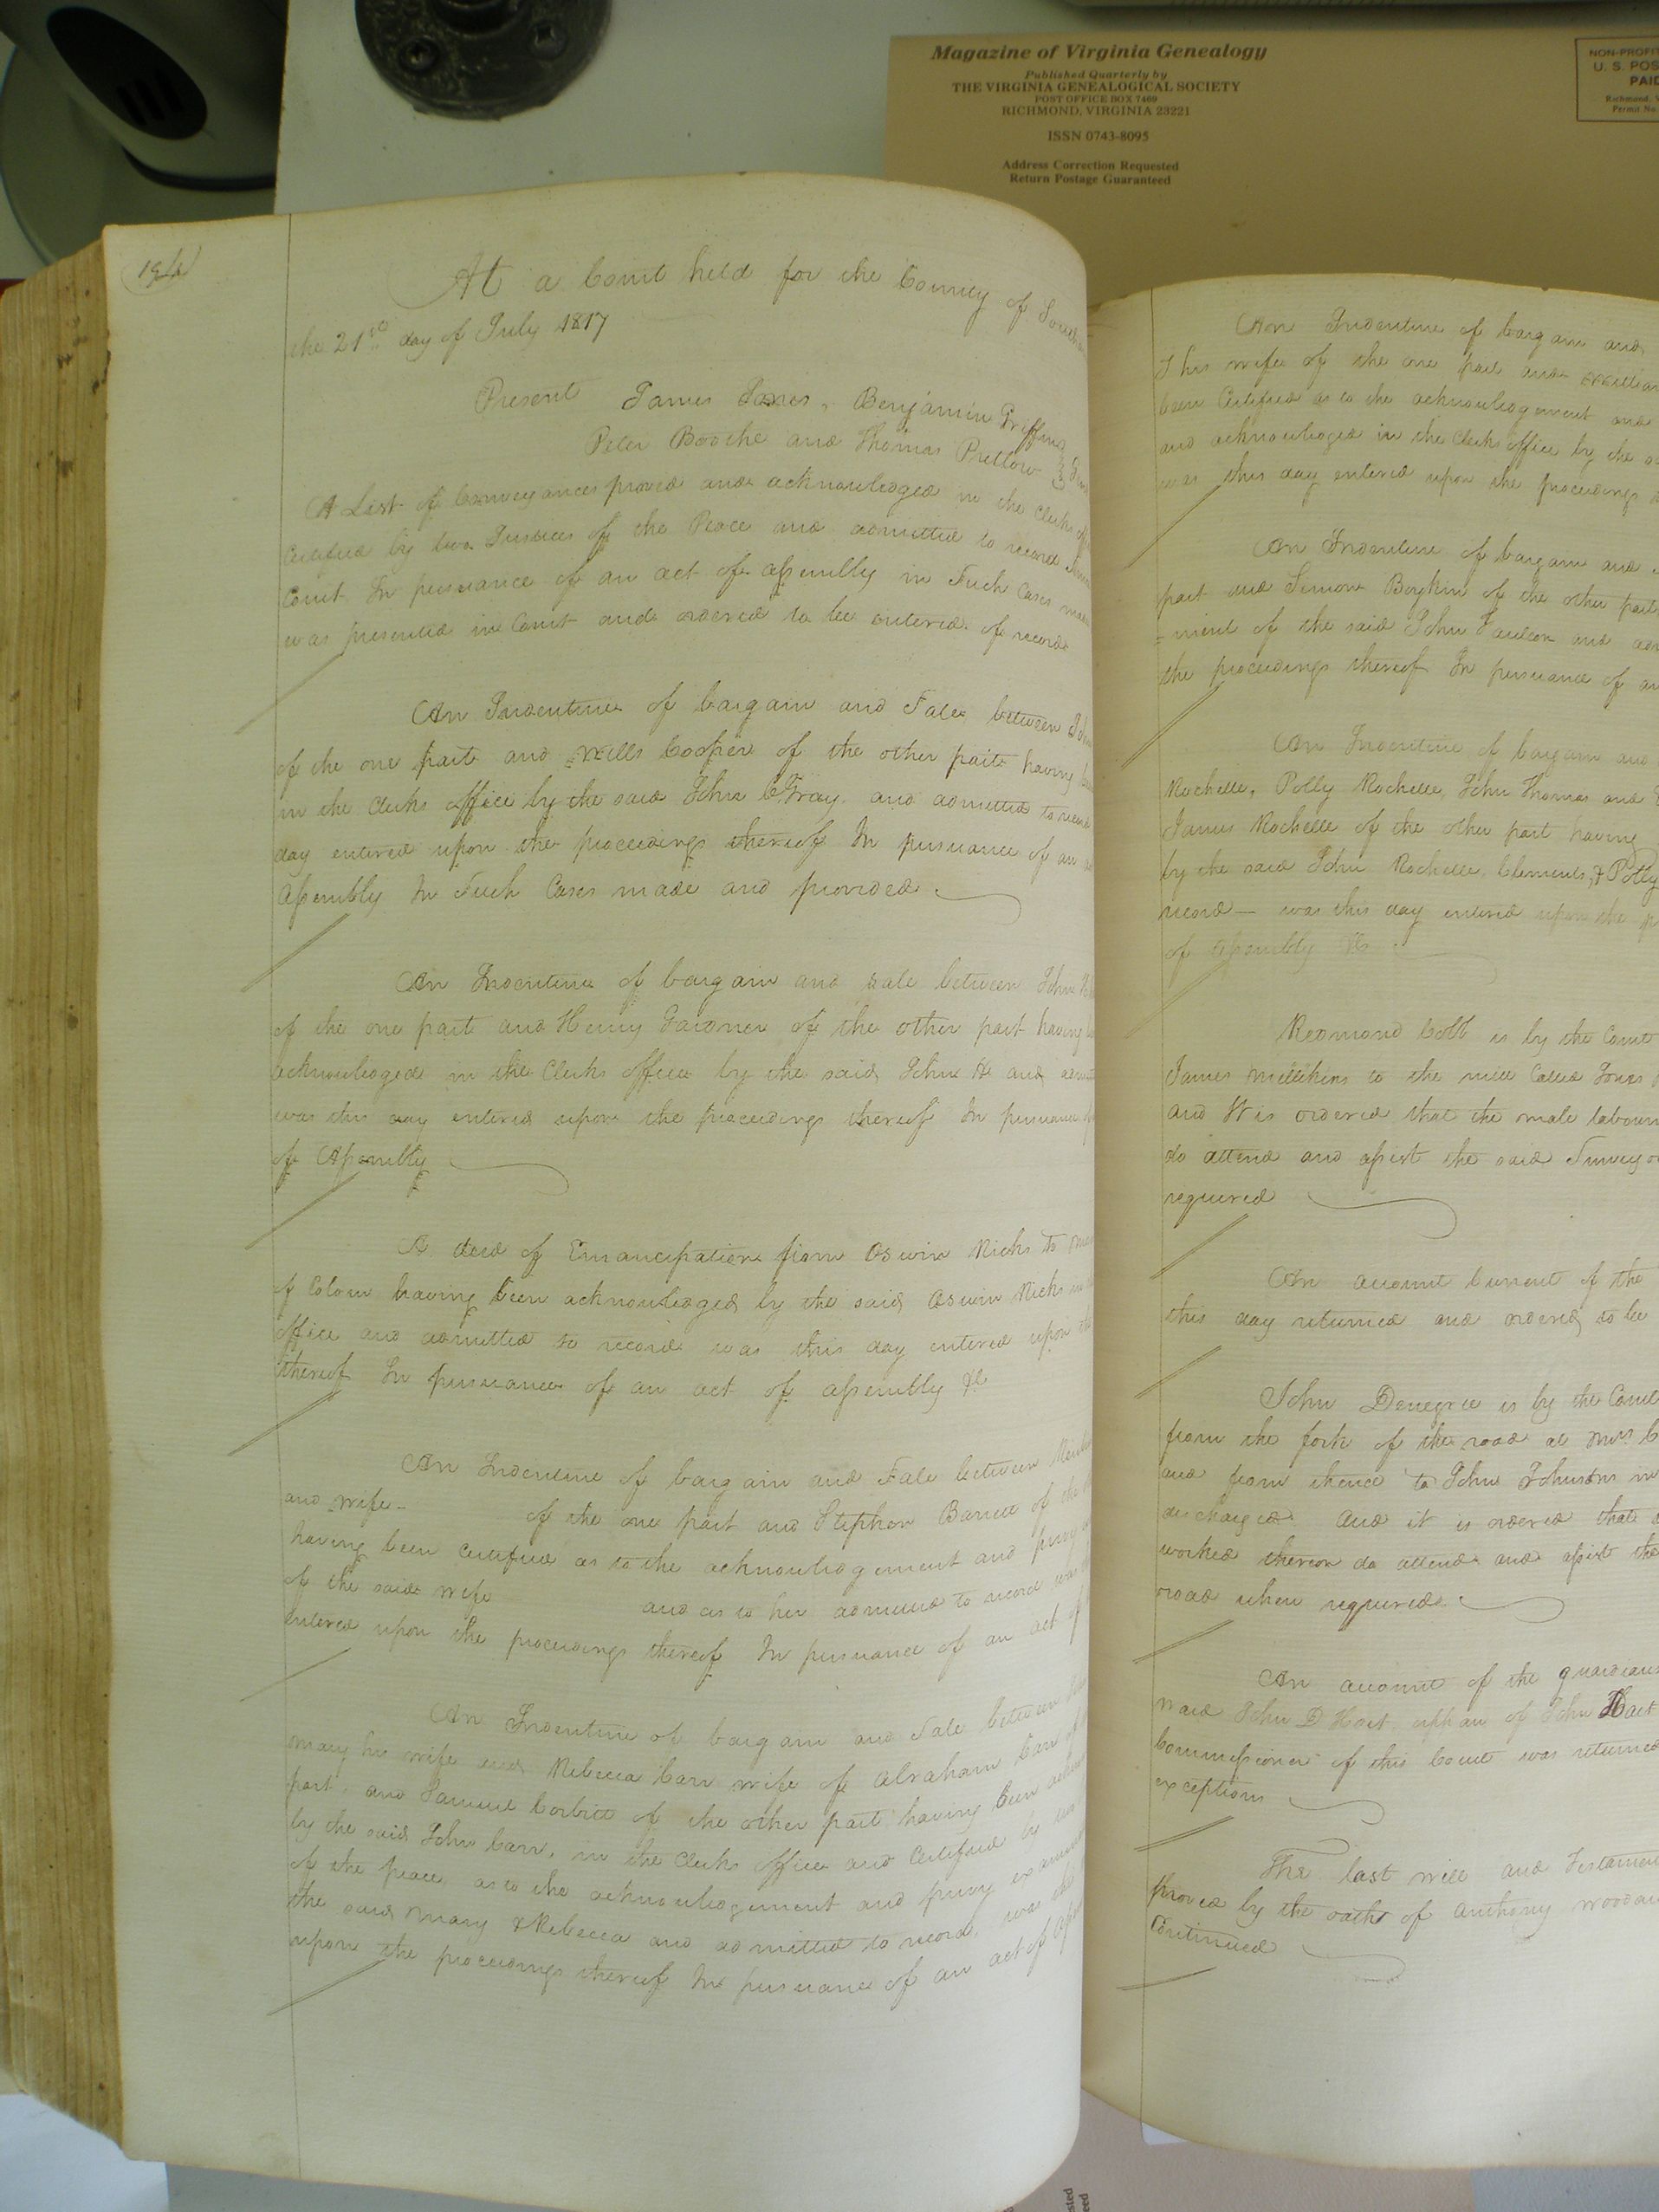 Magazine of Virginia Genealogy
Published Quarterly by
THE VIRGINIA GENEALOGICAL SOCIETY
POST OFFICE BOX 7469
RICHMOND, VIRGINIA 23221
ISSN 0743-8095
Address Correction Requested
Return Postage Guaranteed
NON-PROFIT
U. S. POS
PAID
Richmond,
Permit No.
At a Court held for the County of South
the 21st day of July 1817
Present James Jones, Benjamin Griffin
Peter Boothe and Thomas Pretlow
A List of Conveyances proved and acknowledged in the Clerks
Certified by two Justices of the Peace and admitted to record
Court In pursuance of an act of assembly in Such Cases made
was presented in Court and ordered to be entered of record
An Indenture of bargain and Sale between John
of the one part and Wells Cooper of the other part having
in the Clerks office by the said John C. Gray and admitted to record
day entered upon the proceedings thereof In pursuance of an
Assembly In Such Cases made and provided
An Indenture of bargain and Sale between John
of the one part and Henry Gardner of the other part having
acknowledged in the Clerks office by the said John and
was this day entered upon the proceedings thereof In pursuance
of Assembly
A deed of Emancipation from Oswin Ricks to
of Colour having been acknowledged by the said Oswin Ricks
office and admitted to record was this day entered upon the
thereof In pursuance of an act of assembly &c
An Indenture of bargain and Sale between
and wife of the one part and Stephen of the
having been certified as to the acknowledgement and privy
of the said wife and as to her admitted to record
entered upon the proceedings thereof In pursuance of an act of
An Indenture of bargain and Sale between
Mary his wife and Rebecca Carr wife of Abraham Carr
part and Samuel Corbitt of the other part having been
by the said John Carr, in the Clerks office and Certified by two
of the peace as to the acknowledgement and privy
the said Mary & Rebecca and admitted to record, was
upon the proceedings thereof In pursuance of an act of
An Indenture of bargain and
his wife of the one part and William
been Certified as to the acknowledgement and
and acknowledged in the Clerks office by the
was this day entered upon the proceedings
An Indenture of bargain and
part and Simon Boykin of the other part
-ment of the said John and
the proceedings thereof In pursuance of an
An Indenture of bargain and
Rochelle, Polly Rochelle, John Thomas and
James Rochelle of the other part having
by the said John Rochelle, Clements, & Polly
record - was this day entered upon the
of Assembly &c
Redmond Cobb is by the Court
James Millikins to the mill Called Jones
and It is ordered that the male
do attend and assist the said Surveyor
required
An account Current of the
this day returned and ordered to be
John Denegree is by the Court
from the fork of the road at Mrs
and from thence to John Johnsons
discharged. And it is ordered that
worked thereon do attend and assist the
road when required
An account of the guardians
ward John D Hart orphan of John Hart
Commissioner of this Court was returned
exceptions
The last will and Testament
proved by the oaths of Anthony
Continued